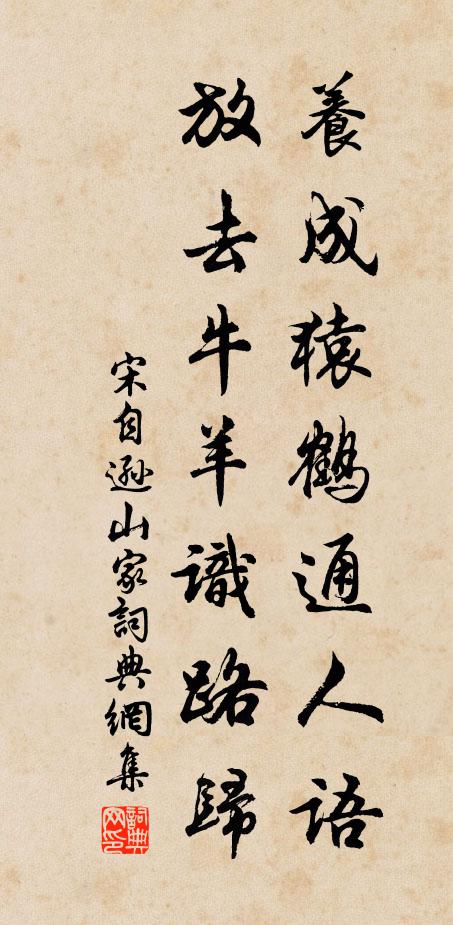 養成猿鶴通人語
放去牛羊識路歸
宋自遜山家詞典網集
詞典网印